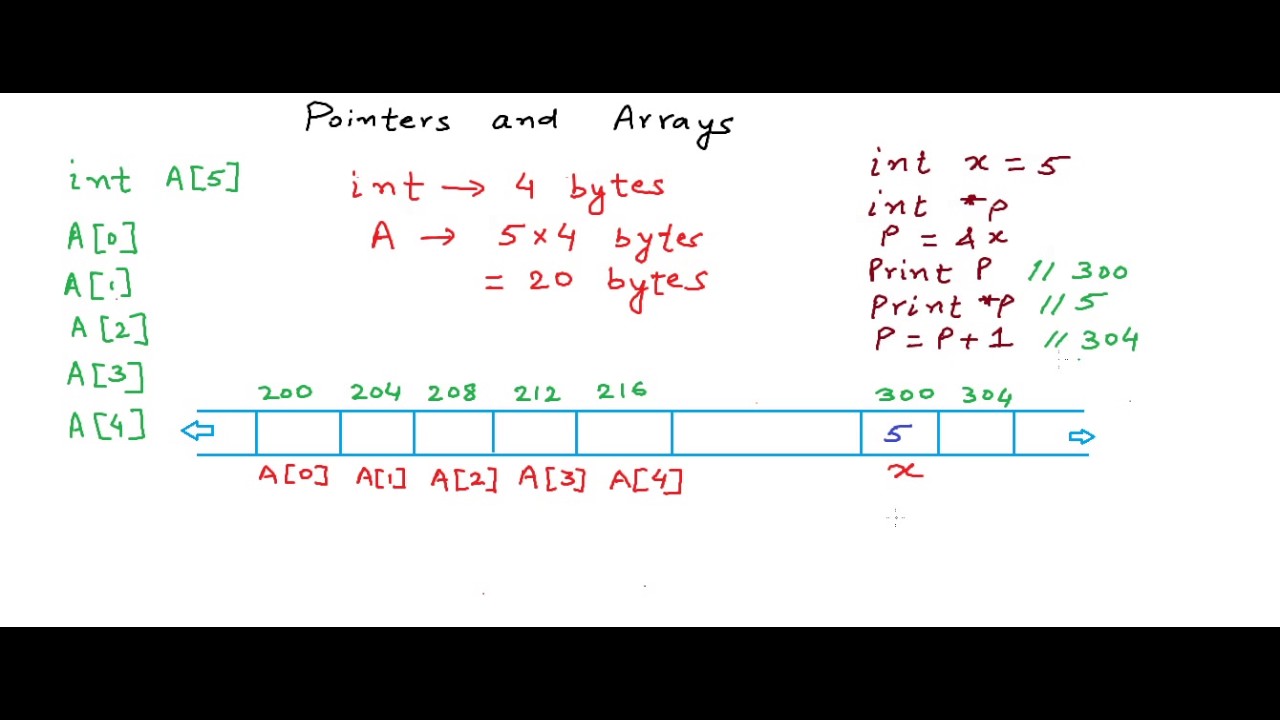 Pointers and Arrays
int A[5]
A[0]
A[1]
A[2]
A[3]
A[4]
int → 4 bytes
A → 5×4 bytes
= 20 bytes
int x = 5
int *p
P = &x
Print P // 300
Print *P // 5
P = P+1 // 304
200 204 208 212 216 300 304
5
A[0] A[1] A[2] A[3] A[4] x